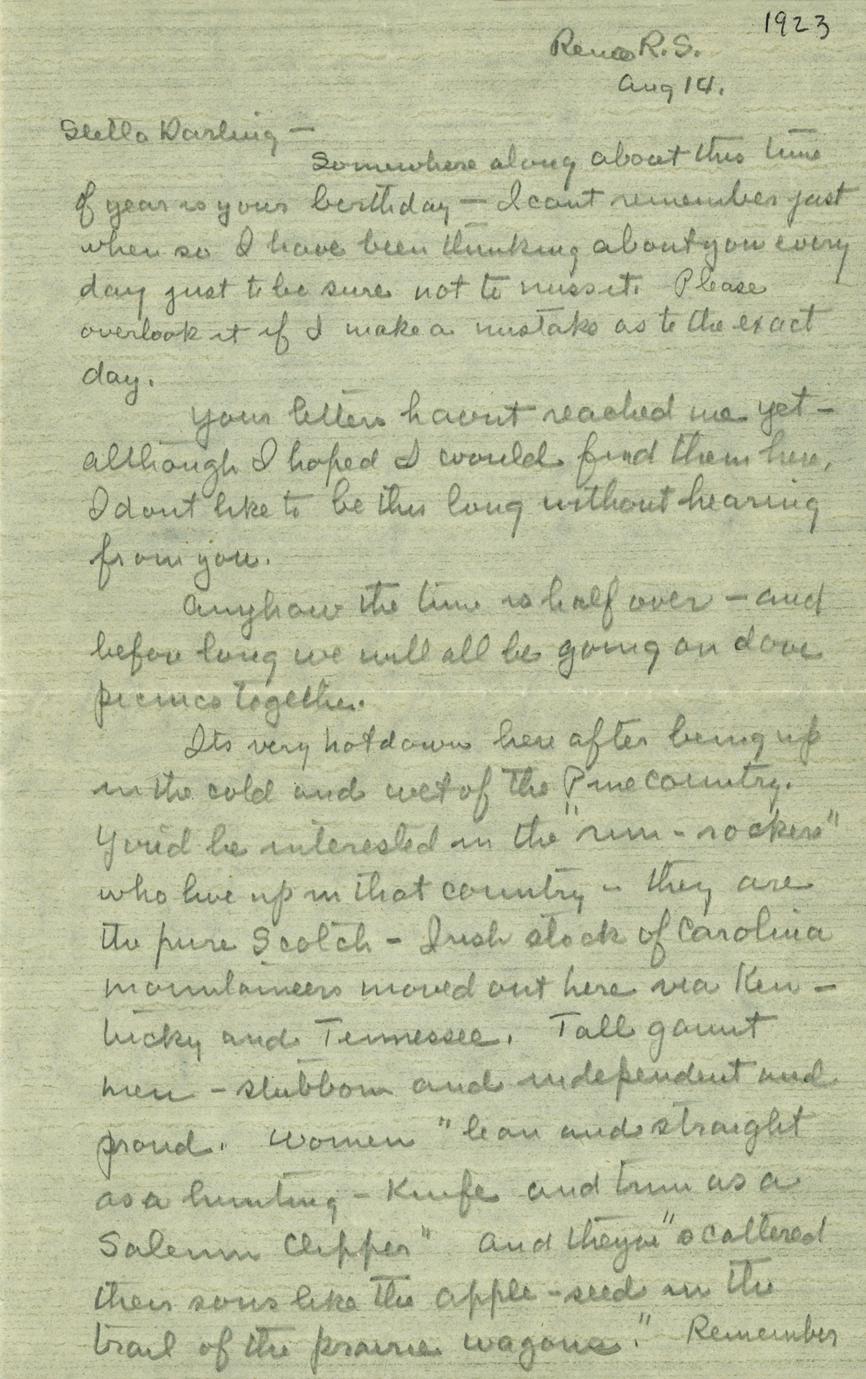 1923
Reno R.S.
Aug 14.
Stella Darling —
Somewhere along about this time
of year is your birthday — I cant remember just
when so I have been thinking about you every
day just to be sure not to miss it. Please
overlook it if I make a mistake as to the exact
day.
Your letters havnt reached me yet –
although I hoped I would find them here.
I dont like to be this long without hearing
from you.
Anyhow the time is half over – and
before long we will all be going on dove
picnics together.
Its very hot down here after being up
in the cold and wet of the Pine country.
You'd be interested in the "rim - rockers"
who live up in that country – they are
the pure Scotch – Irish stock of Carolina
mountaineers moved out here via Ken –
tucky and Tennessee. Tall gaunt
men – stubborn and independent and
proud. Women "lean and straight
as a hunting – Knife and trim as a
Salem Clipper" and they've "scattered
their sons like the apple – seed in the
trail of the prairie wagons." Remember